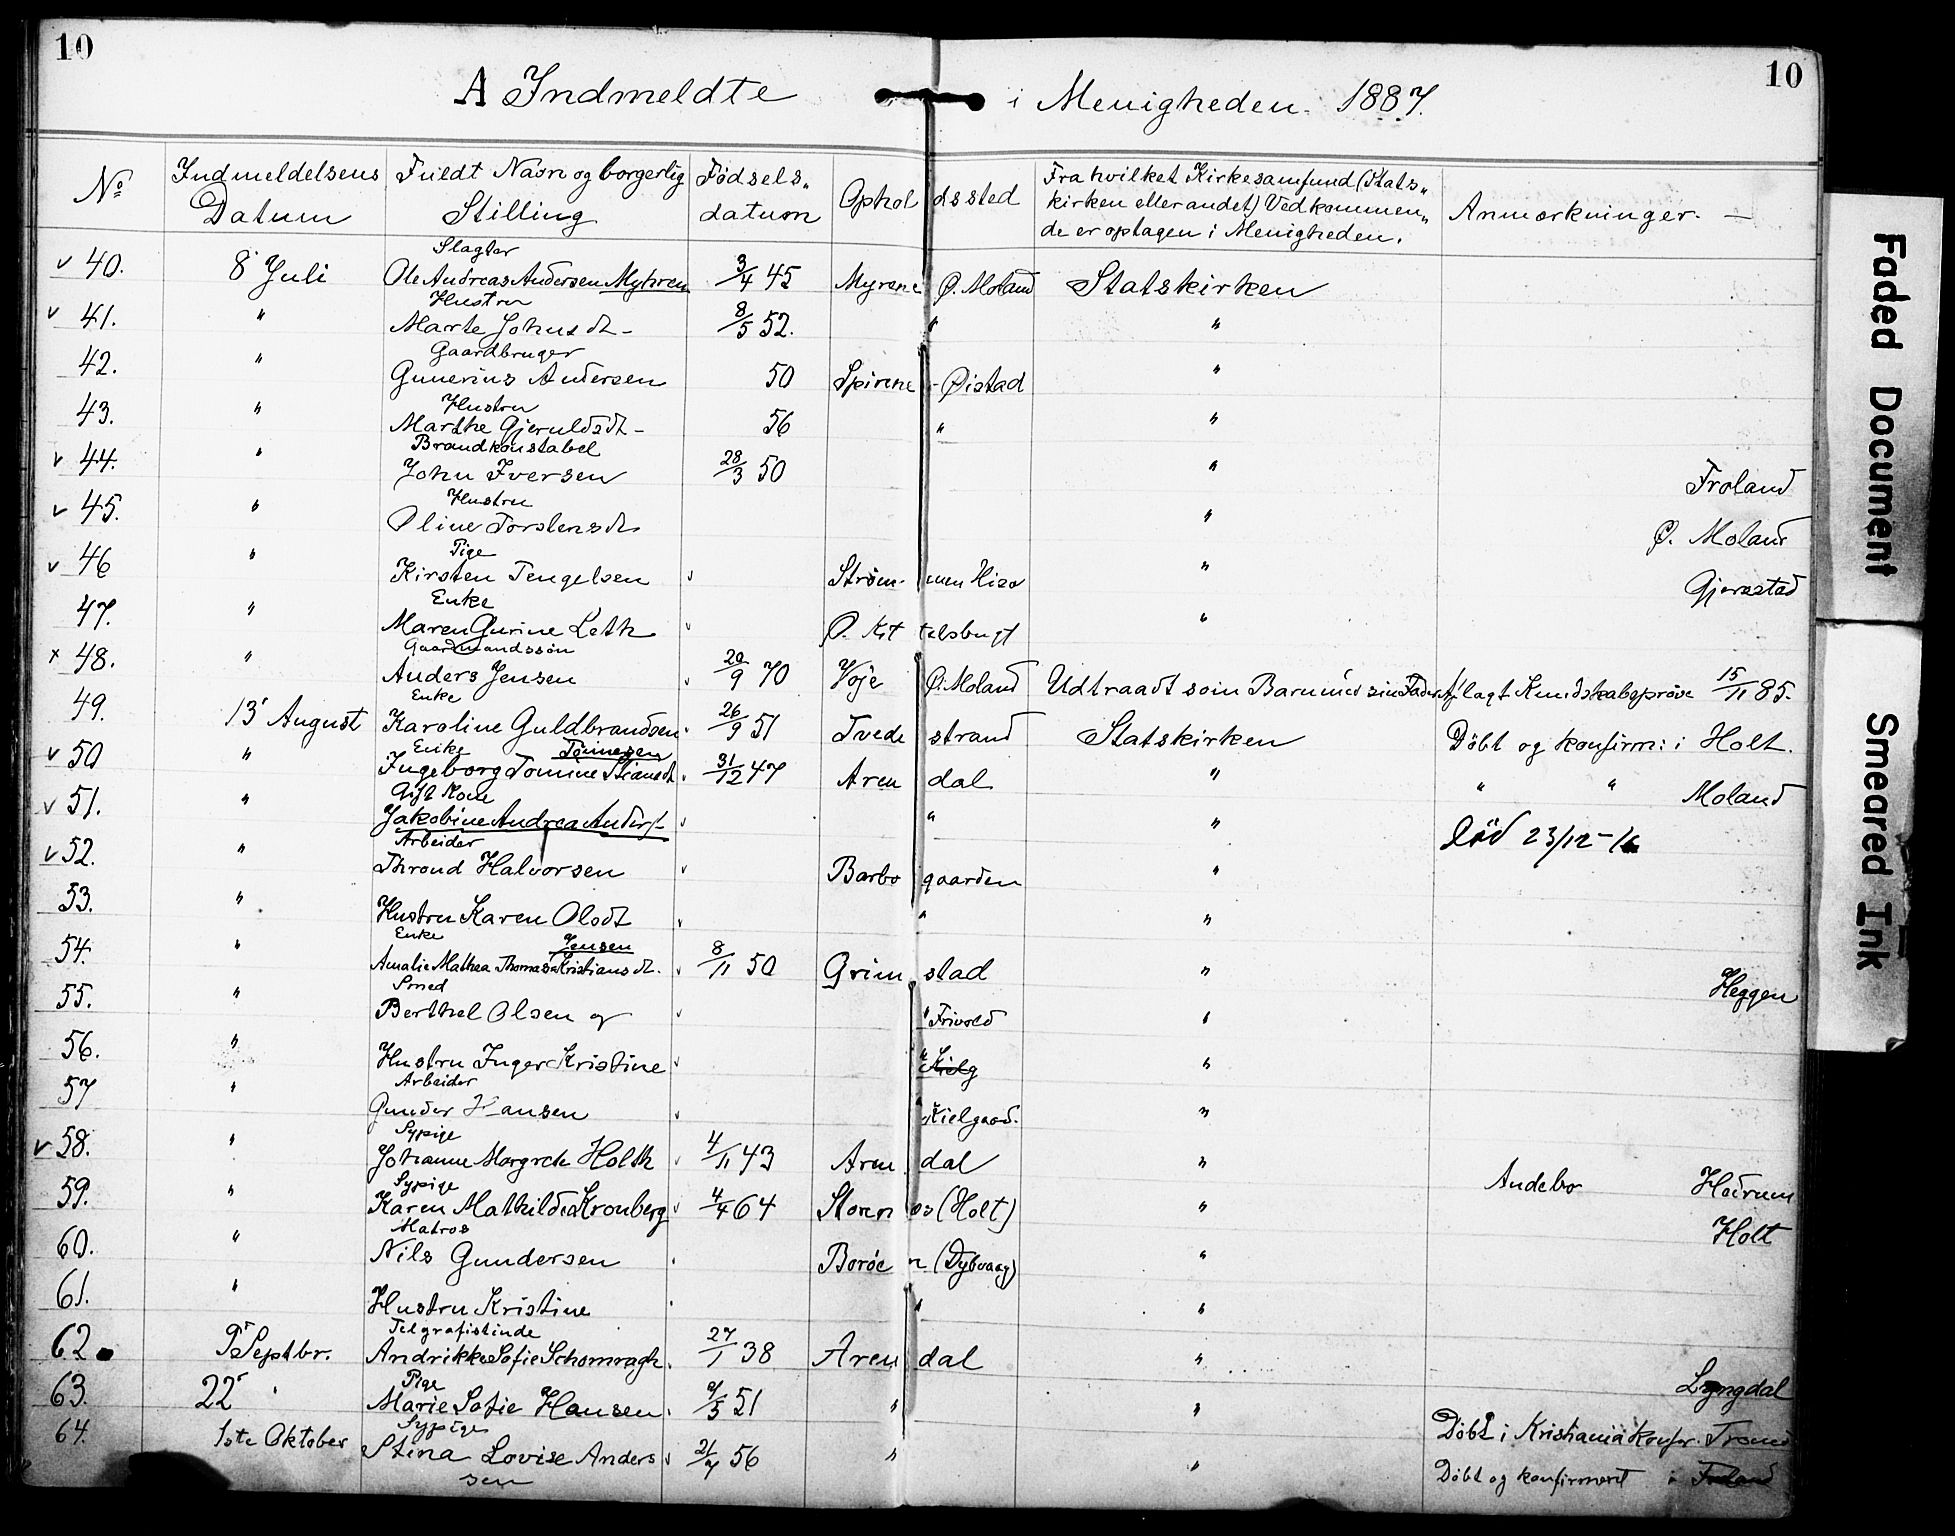 10
10
A Indmeldte i Menigheden. 1887.
No
Indmeldelsens Datum
Fuldt Navn og borgerlig Stilling
Fødsels„ datum
Opholdssted
Fra hvilket Kirkesamfund (Stats„ kirken eller andet) Vedkommen„ de er optagen i Menigheden.
Anmærkninger. —
v 40. 8' Juli Slagter Ole Andreas Andersen Myhren 3/4 45 Myrene Ø. Moland Statskirken
v 41. " Hustru Marte Johnsdt- 8/5 52. " "
42. " Gaardbruger Gunerius Andersen 50 Spirene - Øistad "
43. " Hustru Marthe Gjeruldsdt- 56 " "
v 44. " Brandkonstabel John Iversen 28/3 50 " Froland
v 45. " Hustru Oline Torstensdt " Ø. Moland
v 46 " Pige Kirsten Tengelsen v Strømmen Hisø " Gjerestad
47. " Enke Maren Gurine Leth v Ø. Kittelsbugt "
x 48. " Gaardmandssøn Anders Jensen v 20/9 70 Voje Ø. Moland Udtraadt som Barn med sin Fader Aflagt Kundskabsprøve 15/11 85.
49. 13' August Enke Karoline Guldbrandsen 26/9 51 Tvedestrand Statskirken Döbt og konfirm: i Holt.
v 50 " Enke Tönnesen Ingeborg Tomine Stiansdt. v 31/12 47 Arendal " " " Moland
v 51. " Gift Kone Jakobine Andrea Anders- v " " Död 23/12-16
v 52. " Arbeider Thrond Halvorsen v Barbogaarden "
53. " Hustru Karen Olsdt v " "
54. " Enke Jensen Amalie Mathea Thomasa Kristiansdt. v 8/11 50 Grimstad " Heggen
55. " Smed Berthel Olsen og v " Frivold "
56. " Hustru Inger Kristine v " Kielg "
57 " Arbeider Gunder Hansen v " Kielgaard. "
v 58. " Sypige Johanne Margrete Holth v 4/11 43 Arendal " Andebo Hedrum
59. " Sypige Karen Mathilde Kronberg v 4/4 64 Storenes (Holt) " Holt
60. " Matros Nils Gundersen Borøen (Dybvaag) "
61. " Hustru Kristine " "
62. 9' Septbr. Telgrafistinde Andrikke Sofie Schomragh. 27/1 38 Arendal " Lyngdal
63. 22' " Pige Marie Sofie Hansen. 9/5 51 " " Döbt i Kristiania Konfir.
64. 1ste Oktober Sypige Stina Lovise Anderssen v 56 " " Döbt og konfirmeret i Froland
Faded Document
Smeared Ink